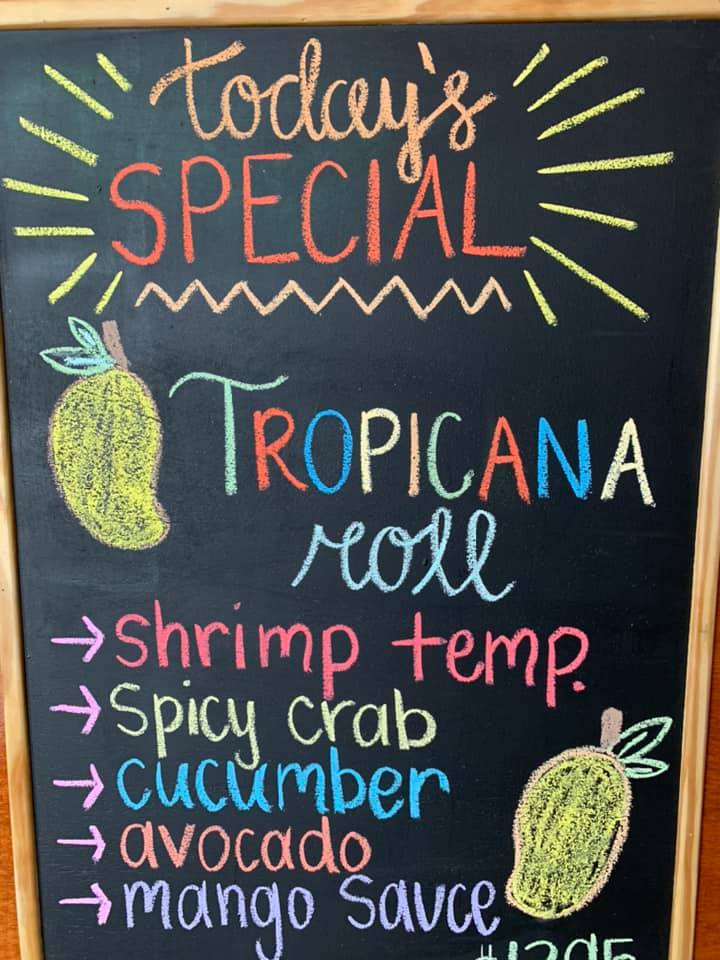 today's
SPECIAL
TROPICANA
roll
→ shrimp temp.
→ spicy crab
→ cucumber
→ avocado
→ mango sauce